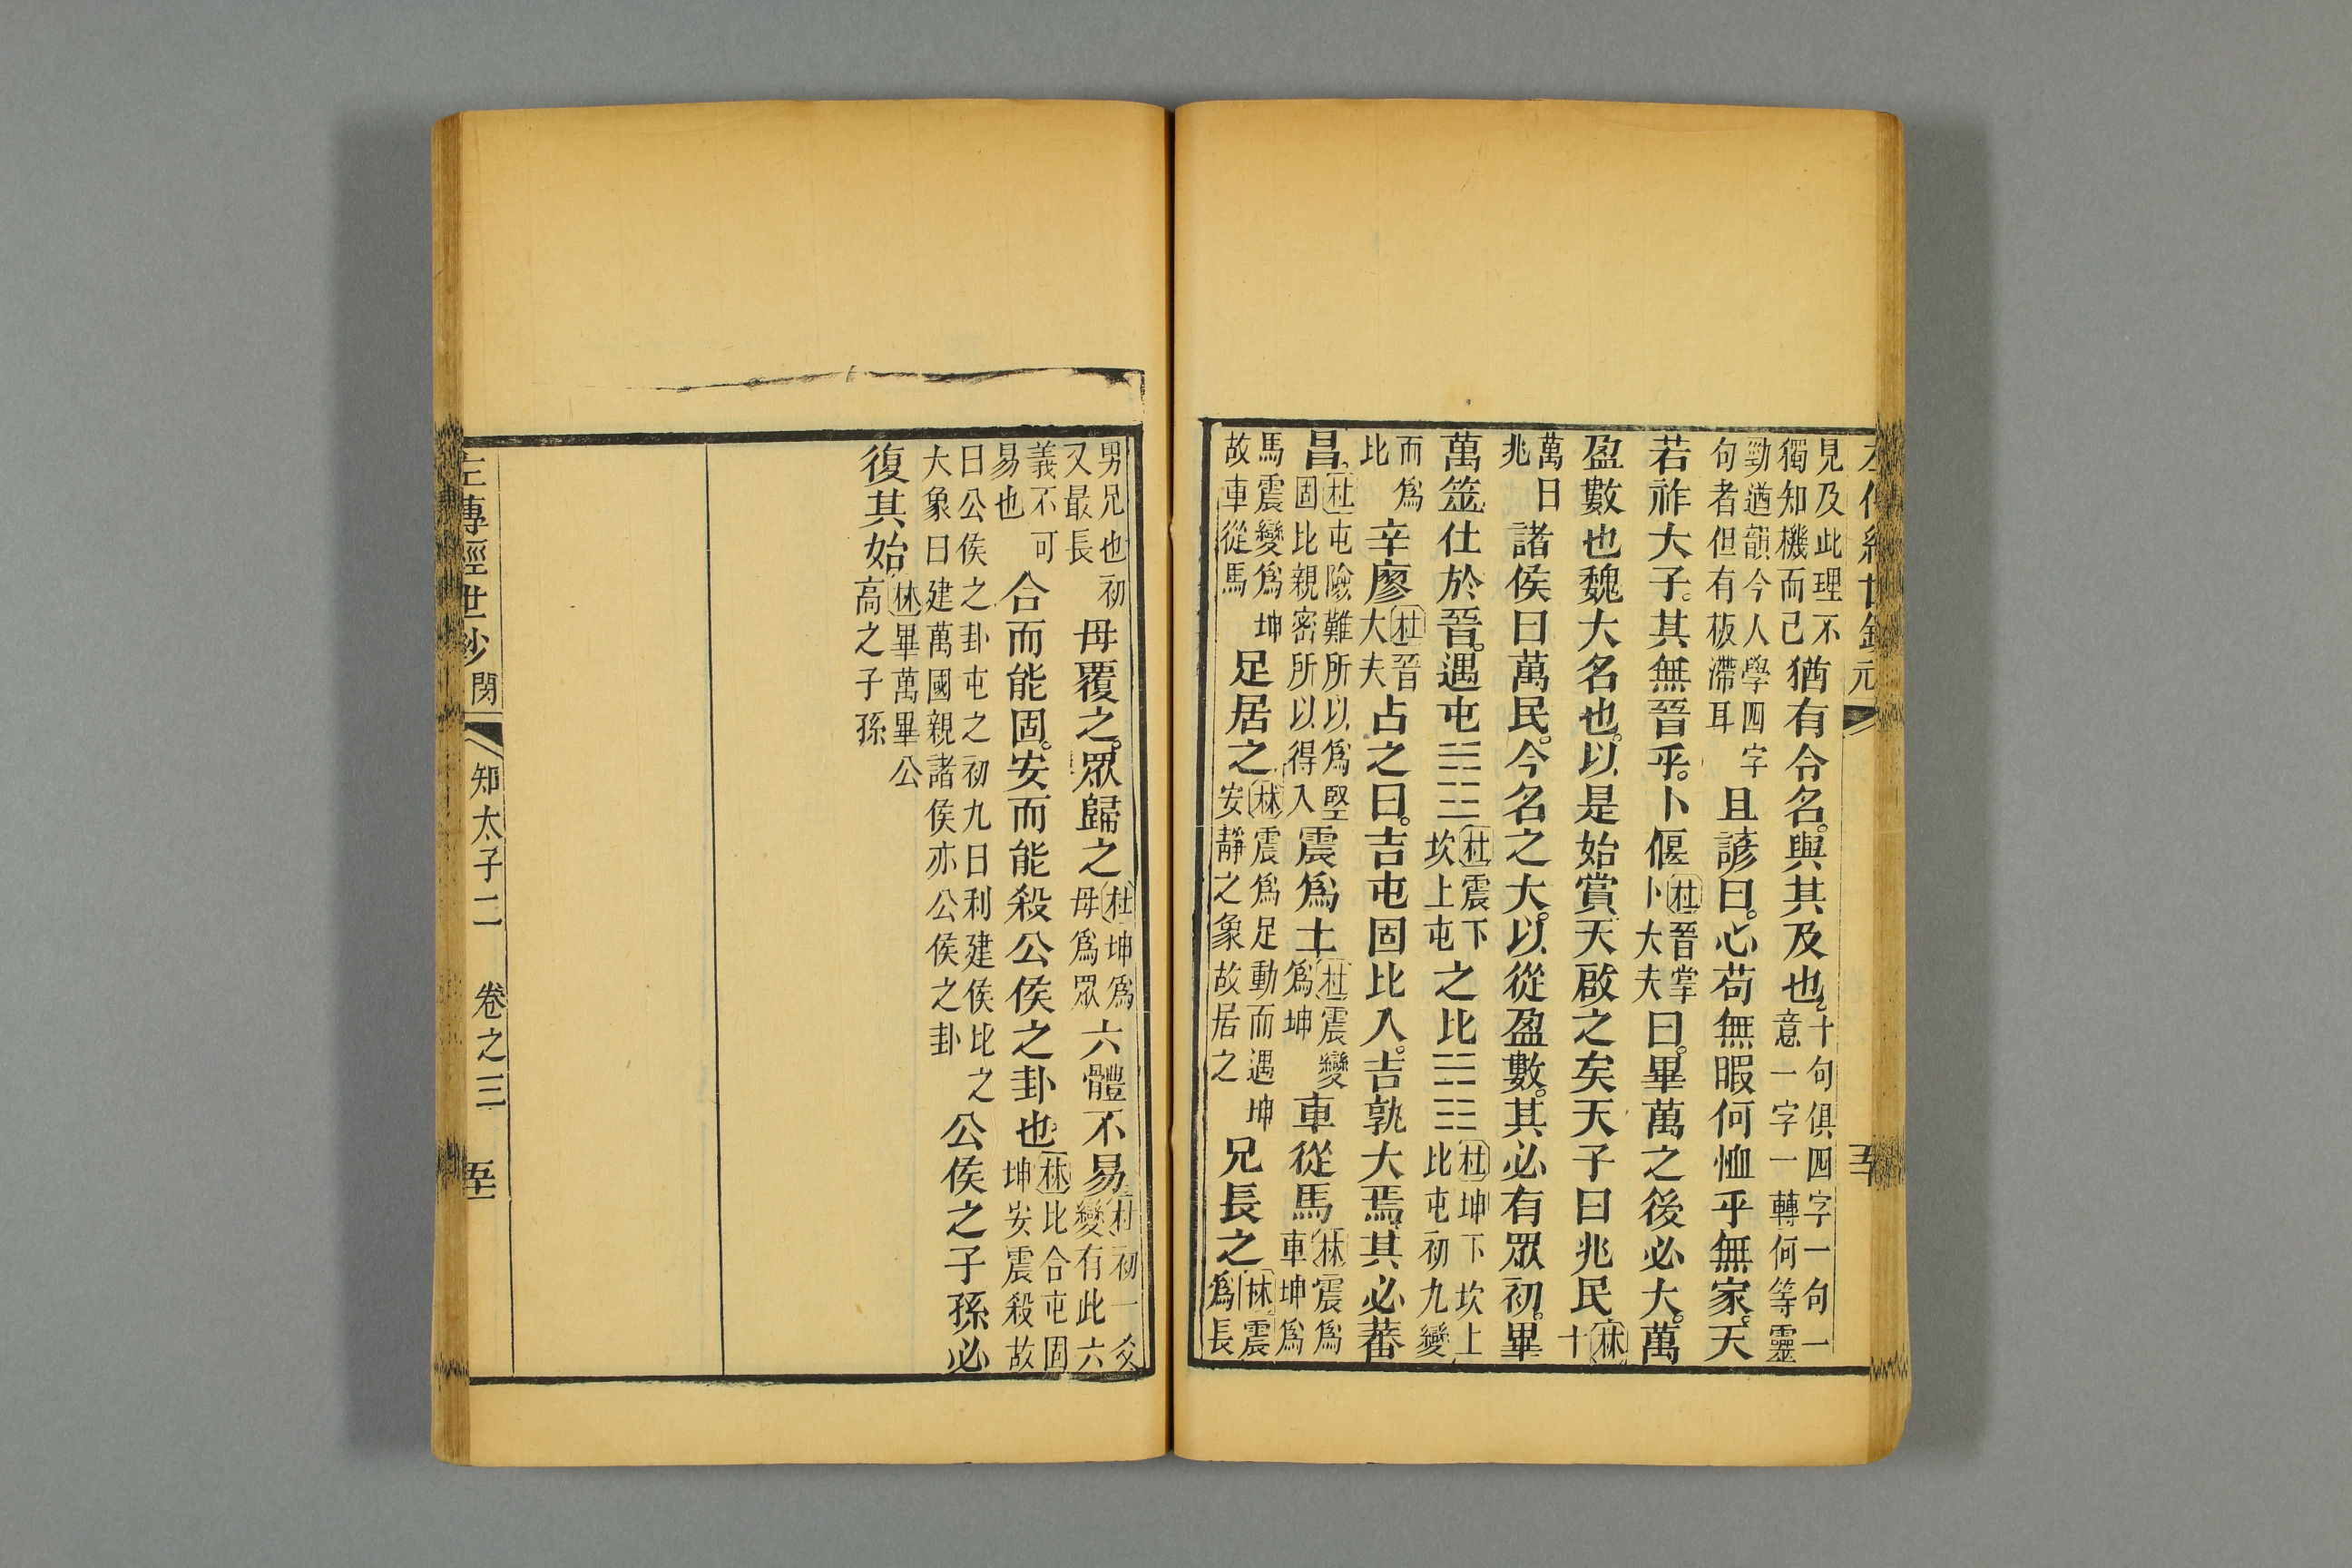 見及此理不獨知機而已猶有令名。與其及也。十句俱四字一句一意一字一轉何等靈
勁遒韻今人學四字句者但有板滯耳且諺曰。心苟無瑕何恤乎無家。天
若祚大子。其無晉乎。卜偃杜晉掌卜大夫曰。畢萬之後必大。萬
盈數也魏大名也。以是始賞天啟之矣天子曰兆民林十
萬曰兆諸侯曰萬民。今名之大。以從盈數。其必有眾初。畢
萬筮仕於晉。遇屯杜震下坎上屯之比杜坤下坎上比屯初九變
而爲比辛廖杜晉大夫占之曰。吉屯固比入。吉孰大焉。其必蕃
昌。杜屯險難所以爲堅固比親密所以得入震爲土杜震變爲坤車從馬林震爲車坤爲
馬震變爲坤故車從馬足居之林震爲足動而遇坤安靜之象故居之兄長之林震爲長
男兄也初又最長母覆之。眾歸之杜坤爲母爲眾六體不易杜初一爻變有此六
義不可易也合而能固。安而能殺公侯之卦也林比合屯固坤安震殺故
曰公侯之卦屯之初九曰利建侯比之大象曰建萬國親諸侯亦公侯之卦公侯之子孫必
復其始林畢萬畢公高之子孫
左傳經世鈔 閔 知太子二 卷之三